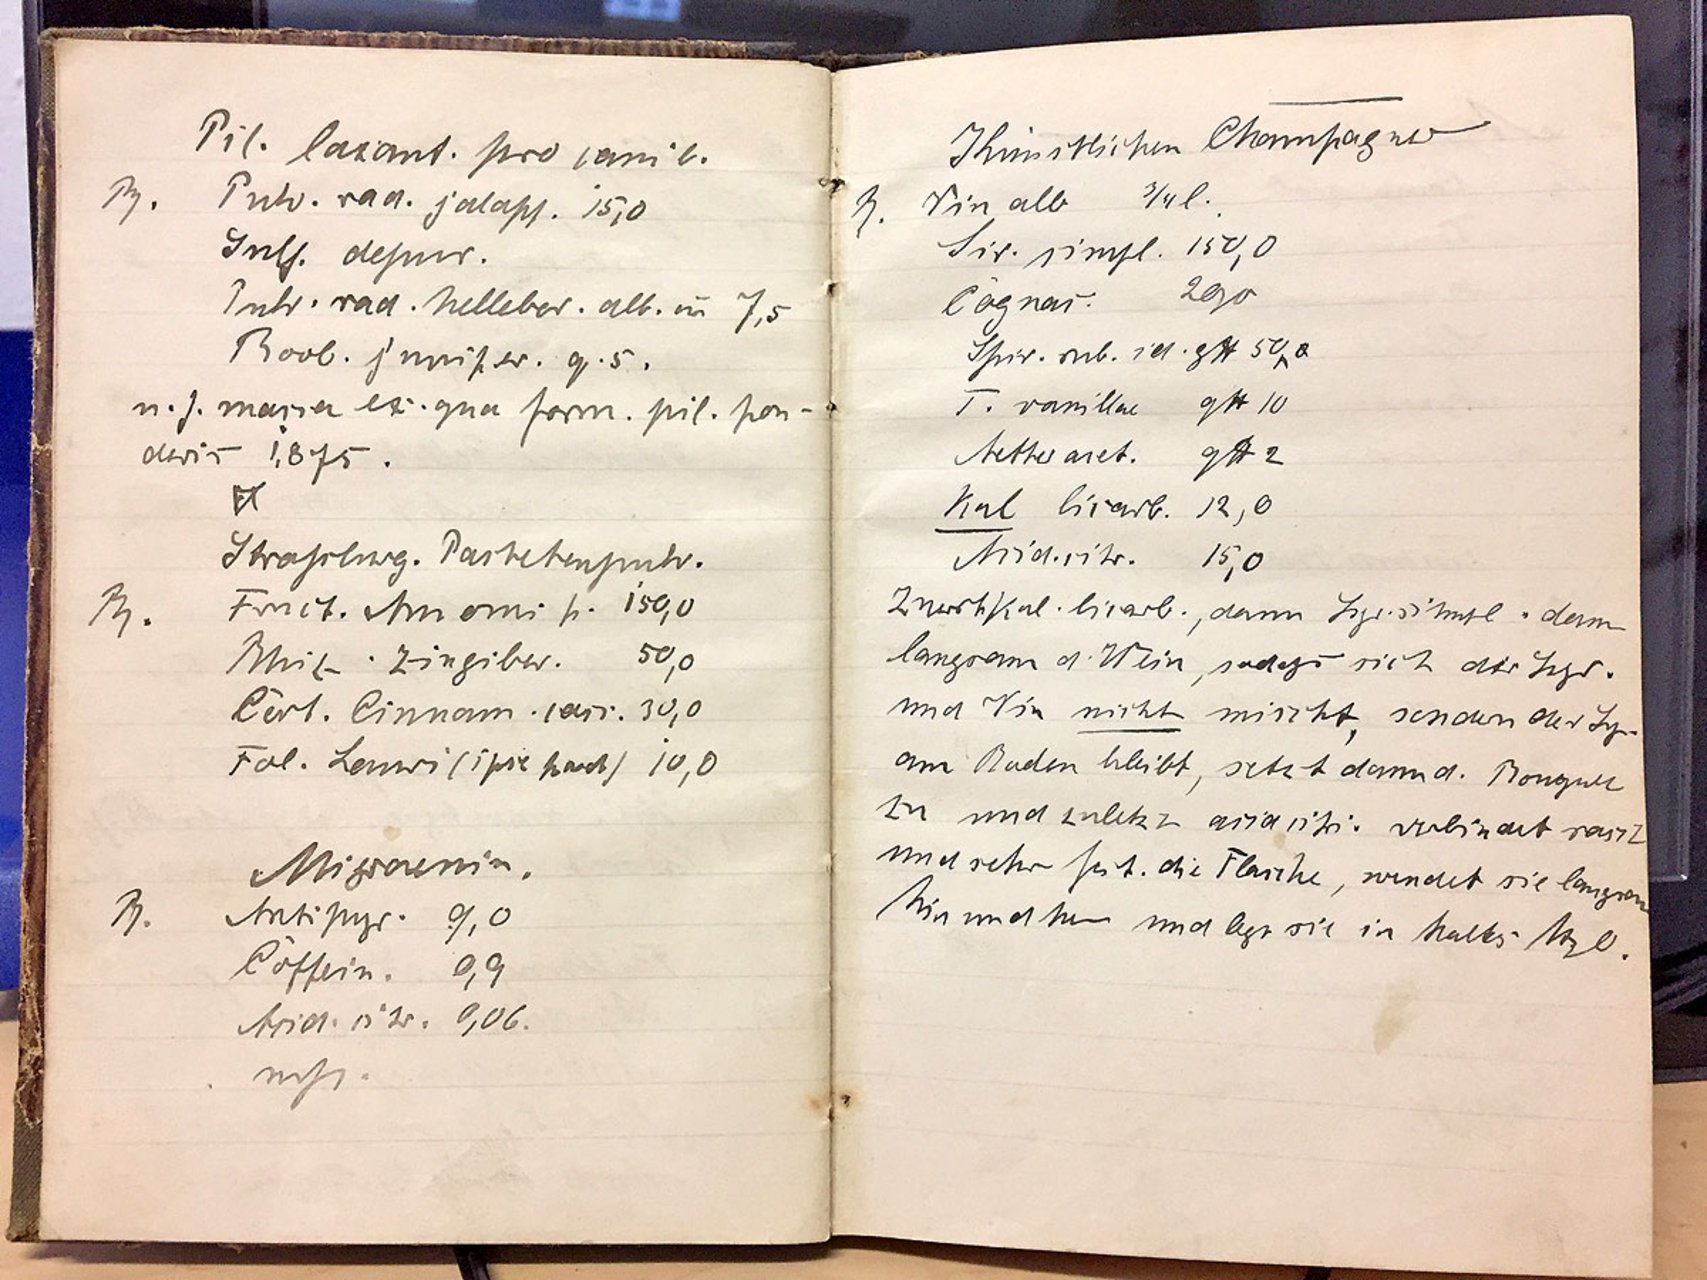 Pil. laxant. pro canib.
Rp. Pulv. rad. jalapp. 15,0
Sulf. depur.
Pulv. rad. hellebor. alb. āā 7,5
Roob. juniper. q.s.
m. f. massa ex qua form. pil. pon-
deris 1,875.
Strassburg. Pastetenpulv.
Rp. Fruct. Amomi p. 150,0
Rhiz. Zingiber. 50,0
Cort. Cinnam. cass. 30,0
Fol. Lauri 10,0
Migraenin.
Rp. Antipyr. 9,0
Coffein. 0,9
Acid. citr. 0,06.
Künstlichen Champagner
Rp. Vin alb 3/4 l.
Sir. simpl. 150,0
Cognac.
Spir. gtt 50,0
T. vanillae gtt 10
Aether acet. gtt 2
Kal bicarb. 12,0
Acid. citr. 15,0
Zuerst Kal. bicarb., dann Syr. simpl. dann
langsam d. Wein, sodass sich der Syr.
und Vin nicht mischt, sondern der Sy.
am Boden bleibt, setzt dann d. Bouquet
zu und zuletzt acid citr. verbindet rasch
und sehr fest. die Flasche, wendet sie langsam
hin und her und legt sie in kaltes